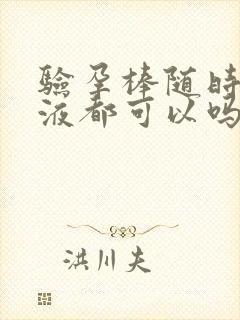 驗孕棒随时
液都可以吗
洪川夫